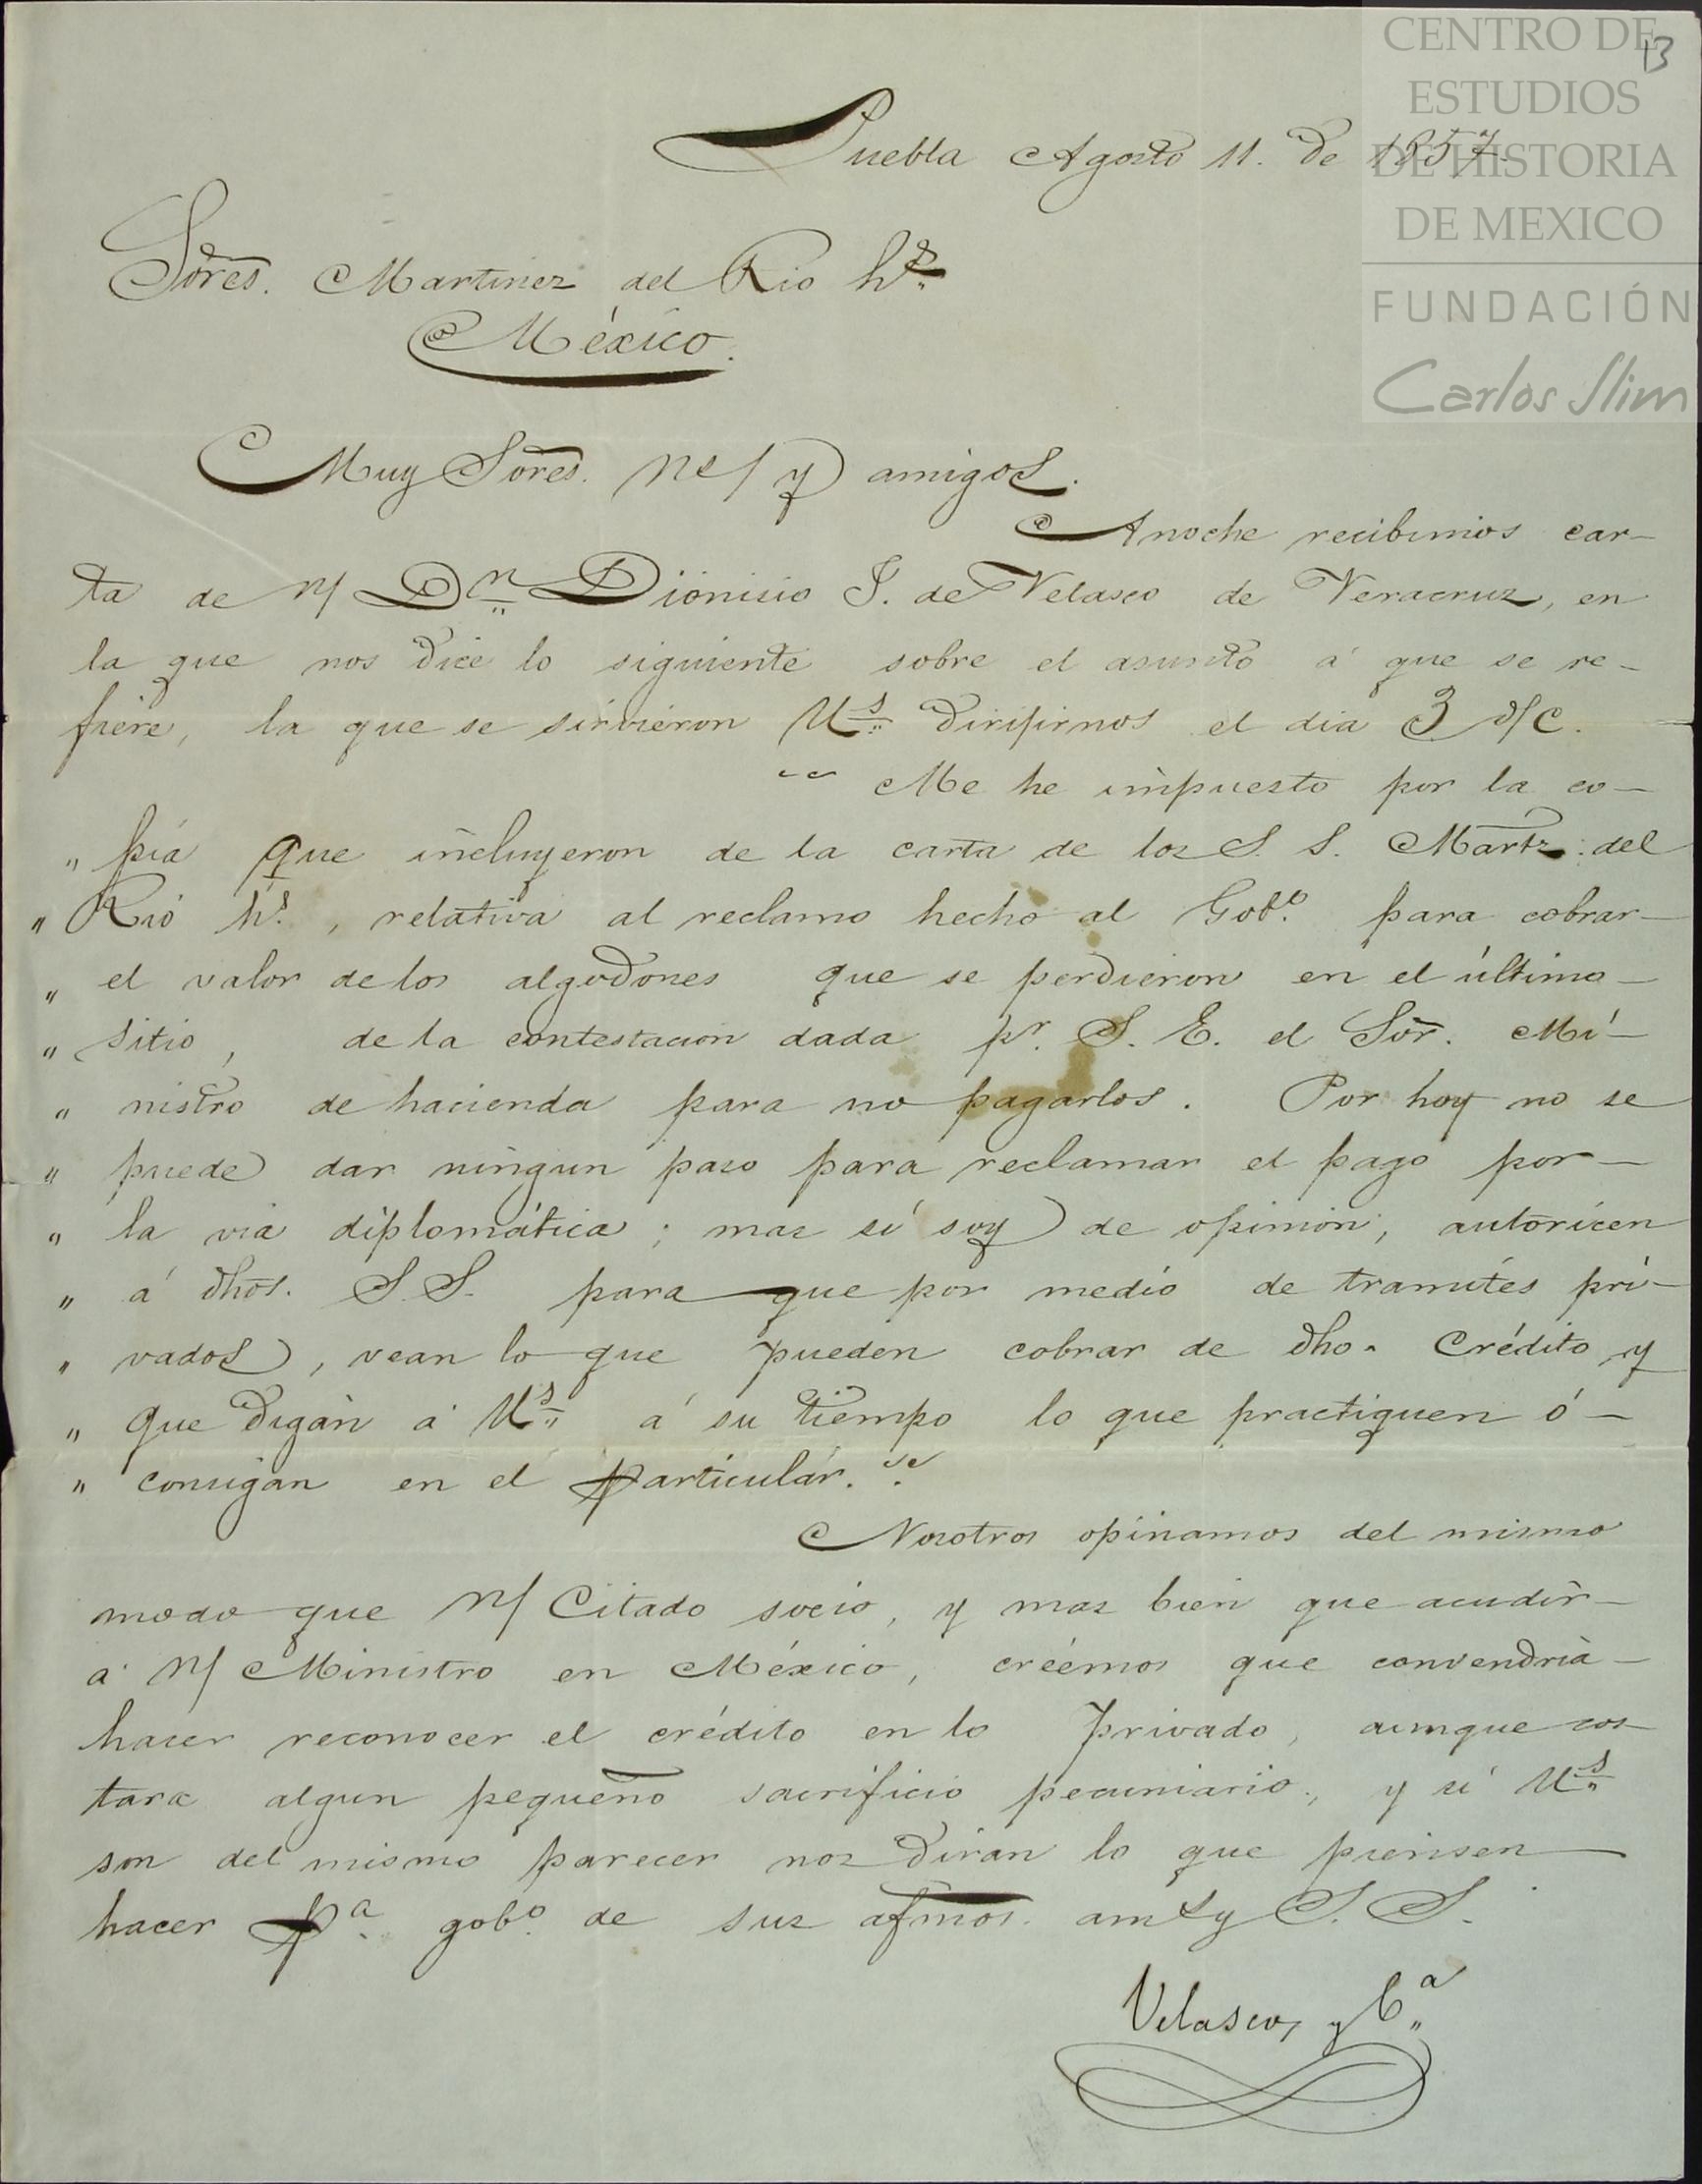 CENTRO DE
ESTUDIOS
DE HISTORIA
DE MEXICO
FUNDACIÓN
Carlos Slim
13
Puebla Agosto 11. de 1857.
Sores. Martinez del Rio hs.
México.
Muy Sores. ns/ y amigos.
Anoche recibimos car-
ta de n/ Dn. Dionisio J. de Velasco de Veracruz, en
la que nos dice lo siguiente sobre el asunto á que se re-
fiere, la que se sirvieron Us. dirijirnos el dia 3 d/c.
"" Me he impuesto por la co-
" pia que incluyeron de la carta de los S. S. Martz. del
" Rio hs., relativa al reclamo hecho al Gobo. para cobrar-
" el valor de los algodones que se perdieron en el último-
" sitio, de la contestacion dada pr. S. E. el Sor. Mi-
" nistro de hacienda para no pagarlos. Por hoy no se
" puede dar ningun paso para reclamar el pago por-
" la via diplomática; mas sí soy de opinion, autoricen
" á dhos. S. S. para que por medio de tramites pri-
" vados, vean lo que pueden cobrar de dho. Crédito y
" que digan á Us. á su tiempo lo que practiquen ó-
" consigan en el particular. "
Nosotros opinamos del mismo
modo que n/ Citado socio, y mas bien que acudir-
a n/ Ministro en México, créemos que convendria-
hacer reconocer el crédito en lo privado, aunque cos-
tara algun pequeño sacrificio pecuniario, y si Us.
son del mismo parecer nos diran lo que piensen
hacer pa. gobo. de sus afmos. ams y S. S.
Velasco, y Ca.